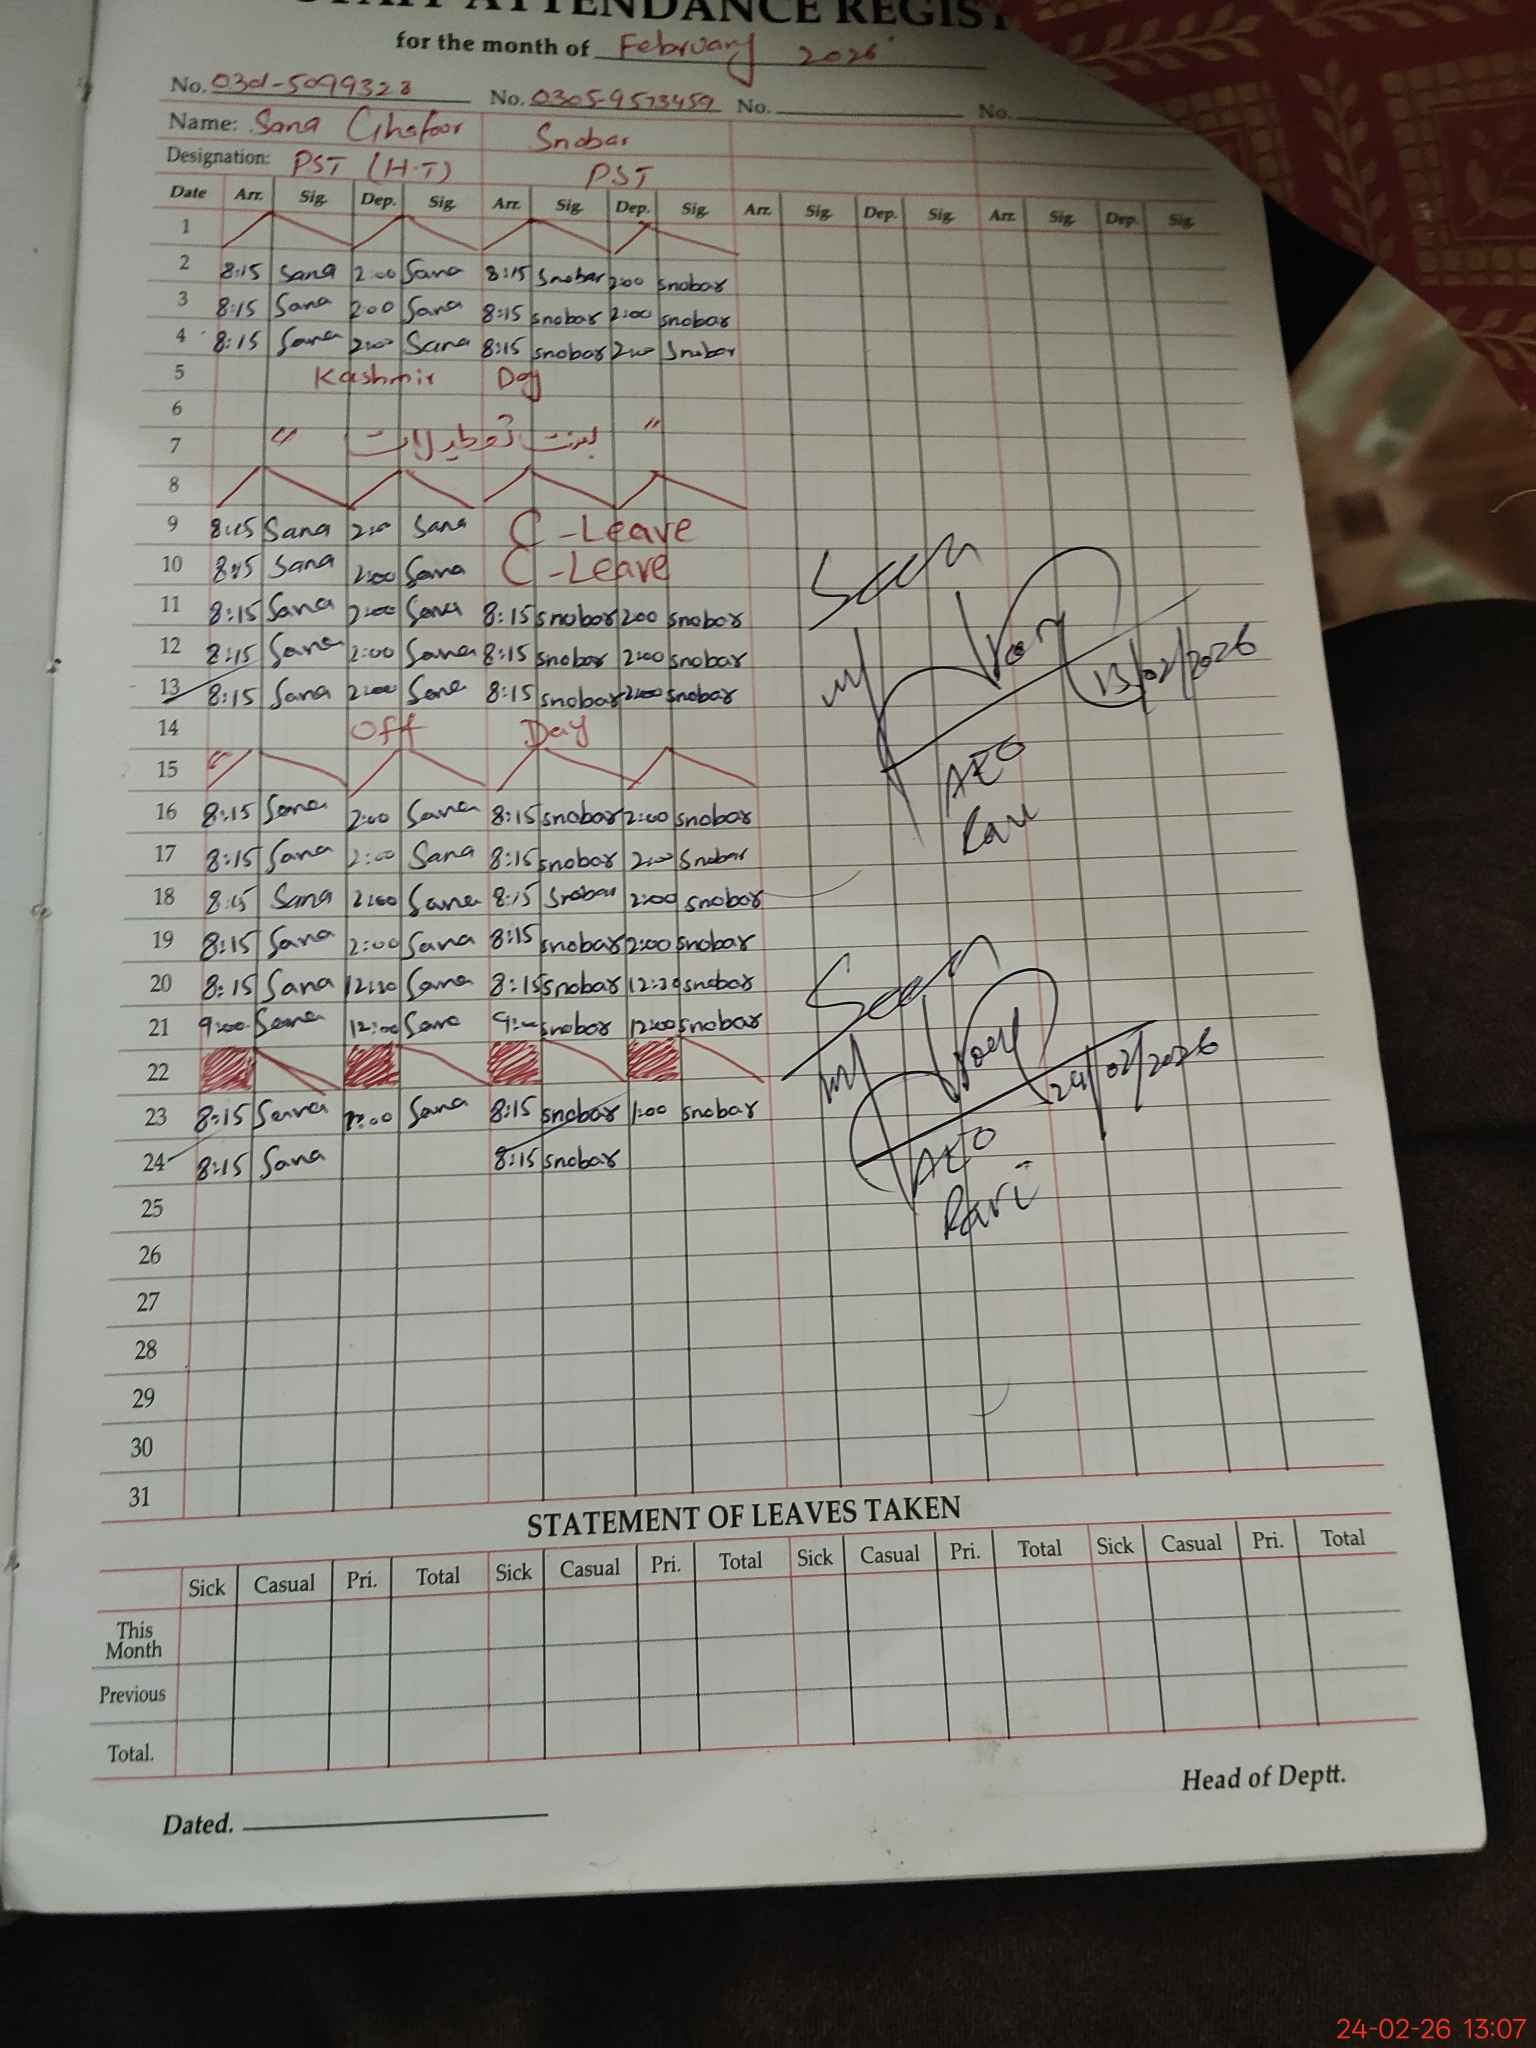 STAFF ATTENDANCE REGIST
for the month of February 2026
No. 0301-5099328 No. 0305-9573459 No. No.
Name: Sana Ghafoor Snobar
Designation: PST (H.T) PST
Date Arr. Sig. Dep. Sig. Arr. Sig. Dep. Sig. Arr. Sig. Dep. Sig. Arr. Sig. Dep. Sig.
1
2 8:15 Sana 2:00 Sana 8:15 Snobar 2:00 snobar
3 8:15 Sana 2:00 Sana 8:15 snobar 2:00 snobar
4 8:15 Sana 2:00 Sana 8:15 snobar 2:00 Snobar
5 Kashmir Day
6
7 " بسنت تعطیلات "
8
9 8:15 Sana 2:00 Sana C-Leave
10 8:15 Sana 2:00 Sana C-Leave
11 8:15 Sana 2:00 Sana 8:15 snobar 2:00 snobar
12 8:15 Sana 2:00 Sana 8:15 snobar 2:00 snobar
13 8:15 Sana 2:00 Sana 8:15 snobar 2:00 snobar
Seen
13/02/2026
AEO
14 Off Day
15
16 8:15 Sana 2:00 Sana 8:15 snobar 2:00 snobar
17 8:15 Sana 2:00 Sana 8:15 snobar 2:00 Snobar
18 8:15 Sana 2:00 Sana 8:15 Snobar 2:00 snobar
19 8:15 Sana 2:00 Sana 8:15 snobar 2:00 snobar
20 8:15 Sana 12:30 Sana 8:15 snobar 12:30 snobar
21 9:00 Sana 12:00 Sana 9:00 snobar 12:00 snobar
22
23 8:15 Sana 1:00 Sana 8:15 snobar 1:00 snobar
24 8:15 Sana 8:15 snobar
Seen
24/02/2026
AEO
25
26
27
28
29
30
31
STATEMENT OF LEAVES TAKEN
Sick Casual Pri. Total Sick Casual Pri. Total Sick Casual Pri. Total Sick Casual Pri. Total
This Month
Previous
Total.
Head of Deptt.
Dated.
24-02-26 13:07